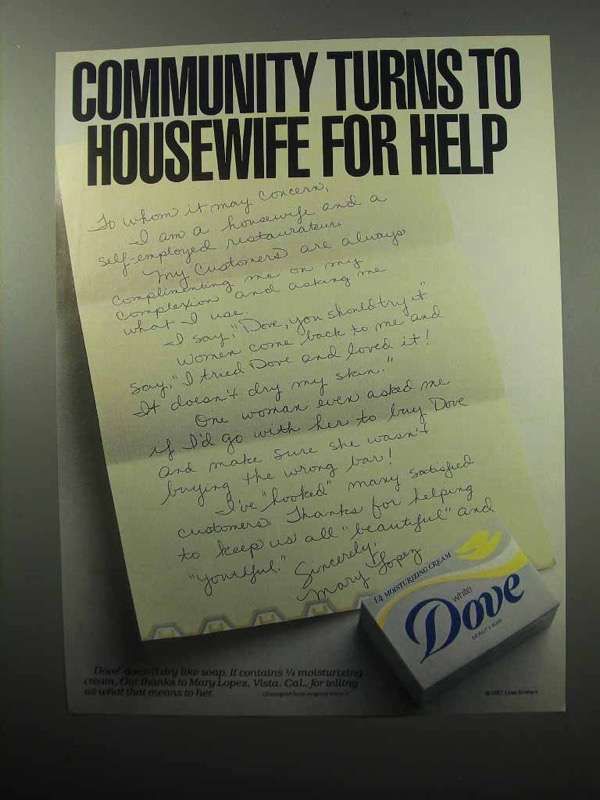 COMMUNITY TURNS TO
HOUSEWIFE FOR HELP
To whom it may concern,
I am a housewife and a
self-employed restaurateur.
My customers are always
complimenting me on my
complexion and asking me
what I use.
I say, "Dove, you should try it"
Women come back to me and
say, "I tried Dove and loved it!
It doesn't dry my skin."
One woman even asked me
if I'd go with her to buy Dove
and make sure she wasn't
buying the wrong bar!
I've "hooked" many satisfied
customers. Thanks for helping
to keep us all "beautiful" and
"youthful." Sincerely,
Mary Lopez
1/4 MOISTURIZING CREAM
white
Dove
Dove® doesn't dry like soap. It contains ¼ moisturizing
cream. Our thanks to Mary Lopez, Vista, Cal., for telling
us what that means to her.